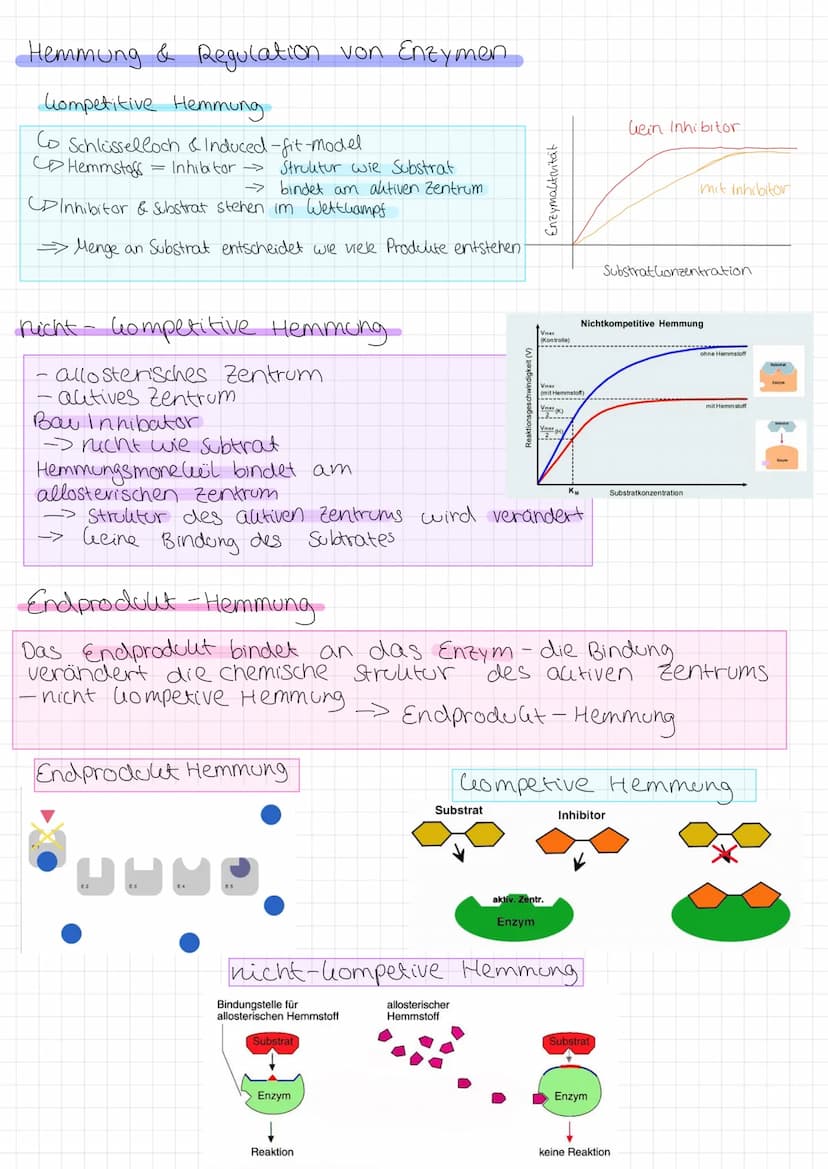 Hemmung & Regulation von Enzymen
Kompetitive Hemmung
↳ Schlüsselloch & Induced-fit-model
↳ Hemmstoff = Inhibitor → Struktur wie Substrat
→ bindet am aktiven Zentrum
↳ Inhibitor & Substrat stehen im Wettkampf
⇒ Menge an Substrat entscheidet wie viele Produkte entstehen
Enzymaktivität
kein Inhibitor
mit Inhibitor
Substratkonzentration
nicht-kompetitive Hemmung
- allosterisches Zentrum
- aktives Zentrum
Bau Inhibitor
→ nicht wie Subtrat
Hemmungsmolekül bindet am
allosterischen Zentrum
→ Struktur des aktiven Zentrums wird verändert
→ keine Bindung des Subtrates
Nichtkompetitive Hemmung
Vmax
(Kontrolle)
ohne Hemmstoff
Vmax
(mit Hemmstoff)
mit Hemmstoff
Vmax/2 (K)
Vmax/2 (H)
Reaktionsgeschwindigkeit (V)
KM
Substratkonzentration
Substrat
Enzym
Substrat
Enzym
Endprodukt-Hemmung
Das Endprodukt bindet an das Enzym - die Bindung
verändert die chemische Struktur des aktiven Zentrums
- nicht kompetive Hemmung
→ Endprodukt-Hemmung
Endprodukt Hemmung
E 2
E 3
E 4
E 5
kompetive Hemmung
Substrat
Inhibitor
aktiv. Zentr.
Enzym
nicht-kompetive Hemmung
Bindungstelle für
allosterischen Hemmstoff
allosterischer
Hemmstoff
Substrat
Substrat
Enzym
Enzym
Reaktion
keine Reaktion